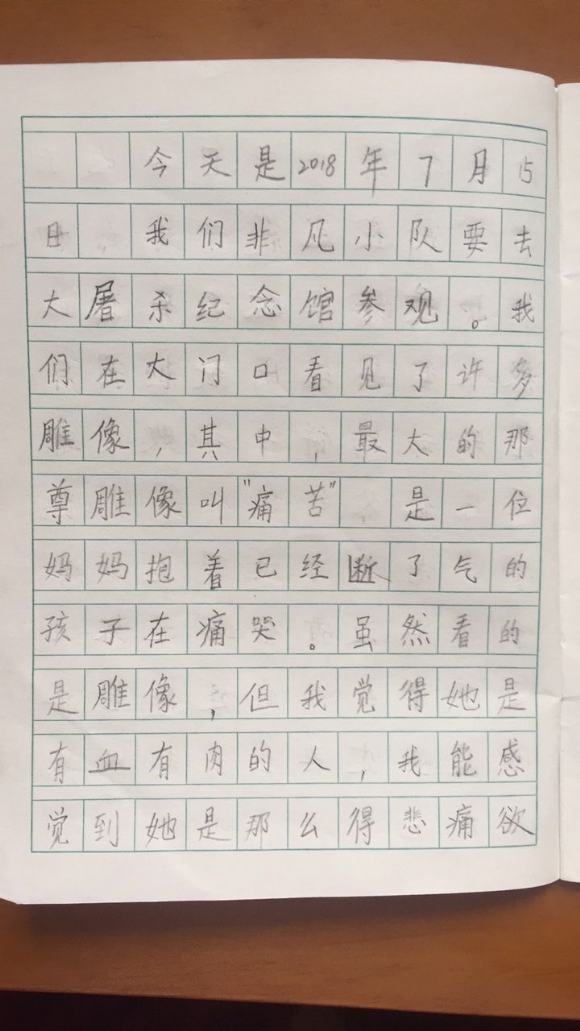 今天是2018年7月15
日，我们非凡小队要去
大屠杀纪念馆参观。我
们在大门口看见了许多
雕像，其中，最大的那
尊雕像叫"痛苦"，是一位
妈妈抱着已经断了气的
孩子在痛哭。虽然看的
是雕像，但我觉得她是
有血有肉的人，我能感
觉到她是那么得悲痛欲